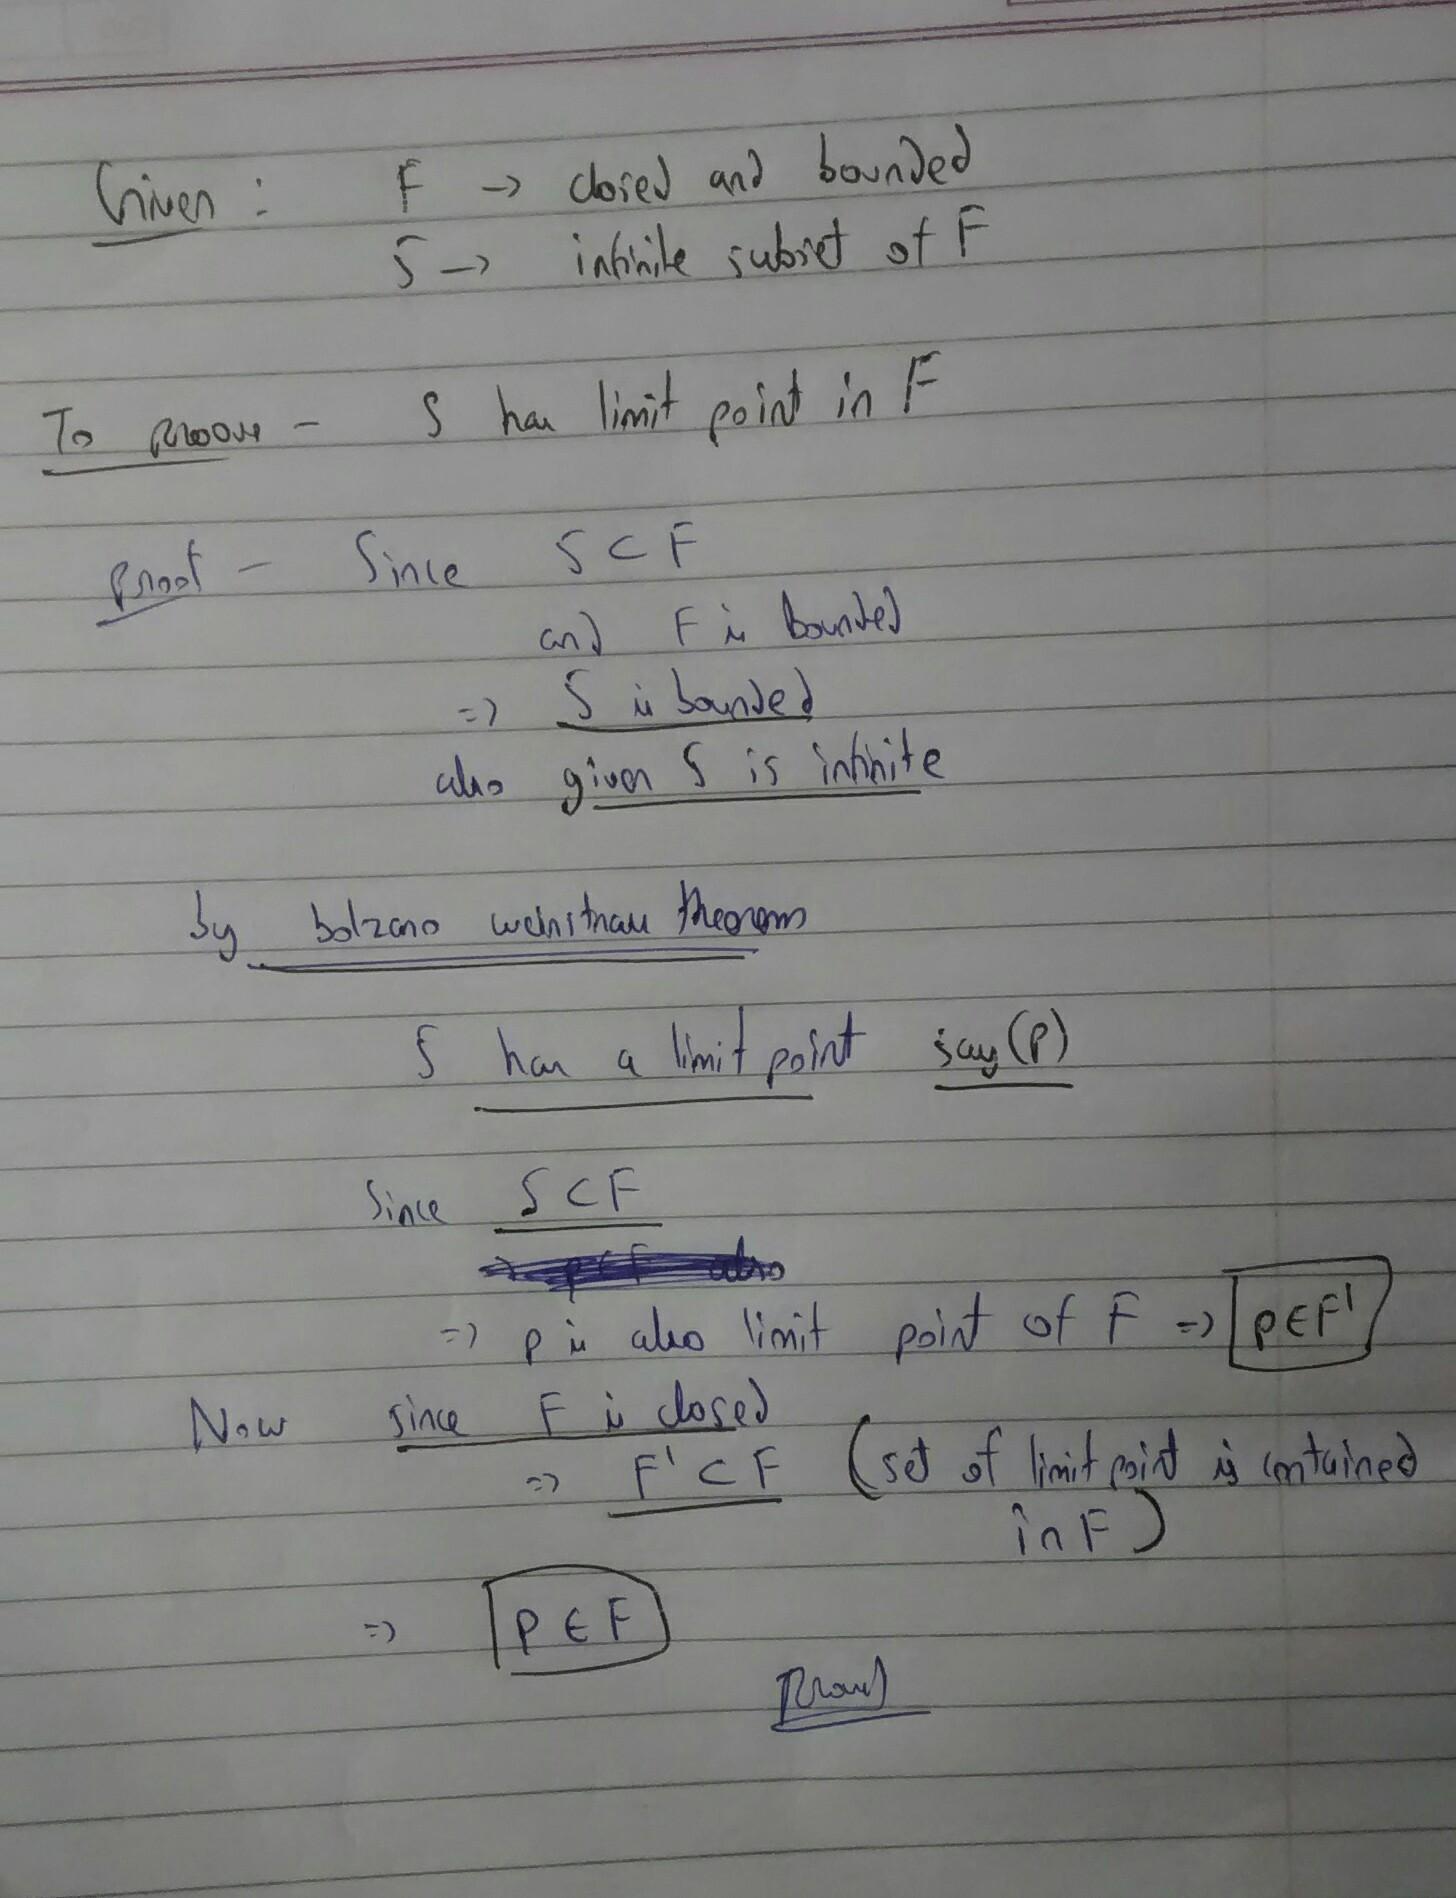 Given : F → closed and bounded
S → infinite subset of F
To proove - S has limit point in F
Proof - Since S ⊂ F
and F is bounded
=> S is bounded
also given S is infinite
by bolzano weinstrass theorem
S has a limit point say (P)
Since S ⊂ F
=> p is also limit point of F => p ∈ F'
Now since F is closed
=> F' ⊂ F (set of limit point is contained
in F)
=> P ∈ F
Proved